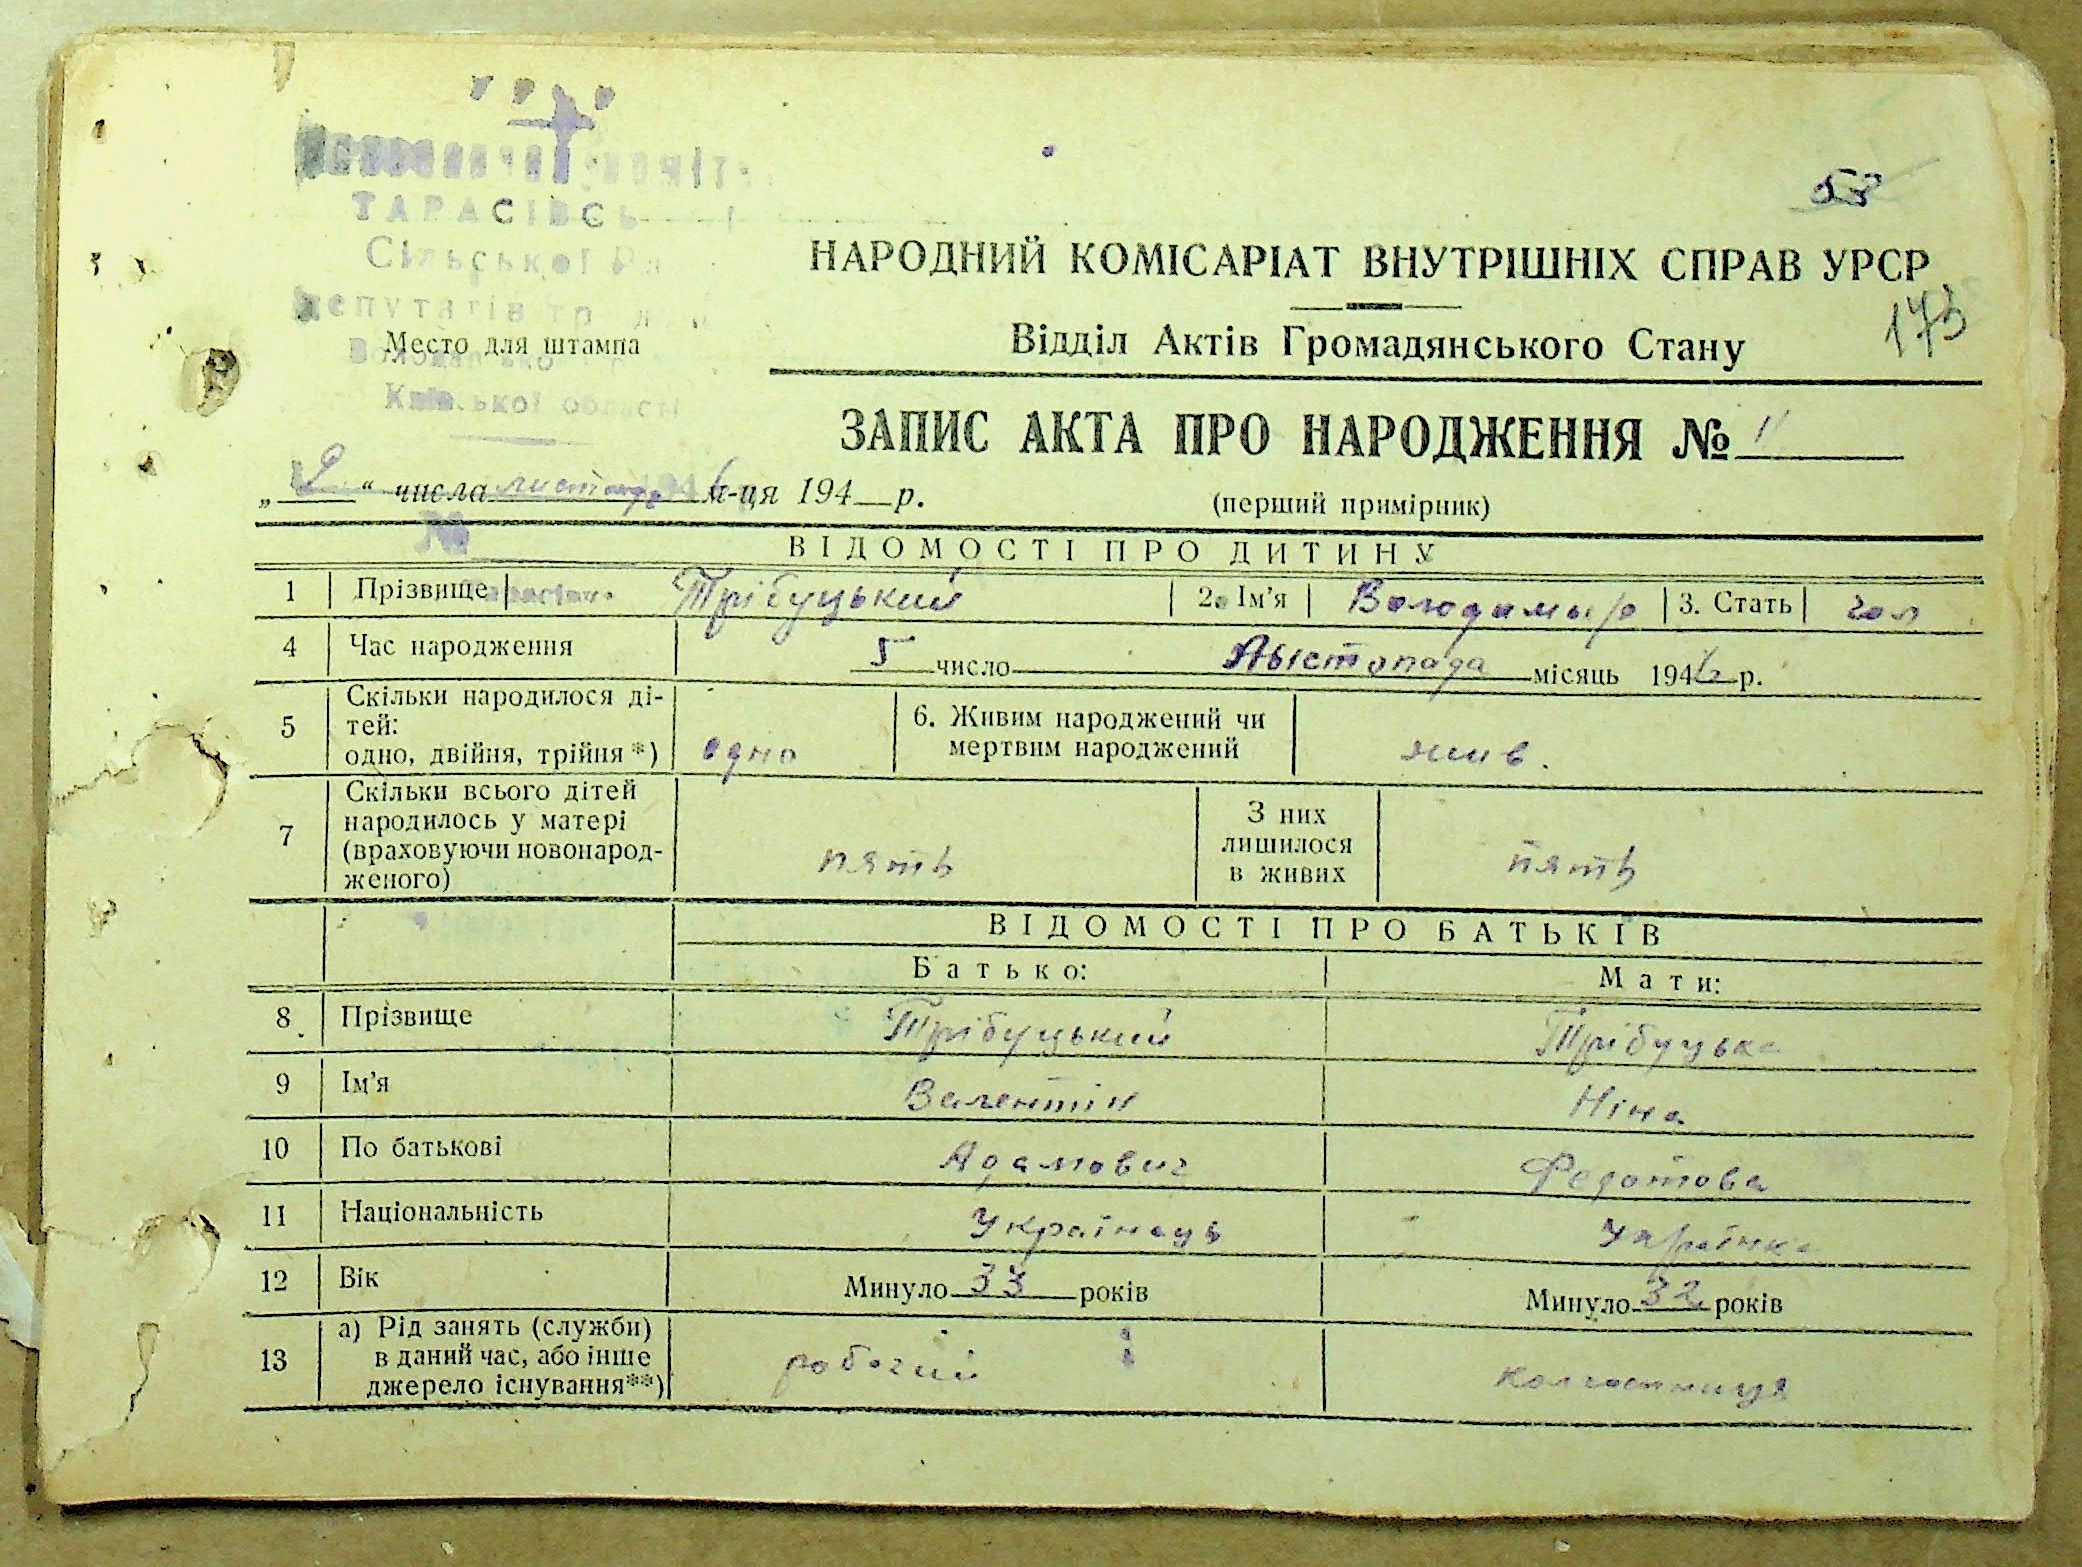 ТАРАСІВСЬ
Сільської Ра
депутатів тр
Место для штампа
Київської області
58
НАРОДНИЙ КОМІСАРІАТ ВНУТРІШНІХ СПРАВ УРСР
173
Відділ Актів Громадянського Стану
ЗАПИС АКТА ПРО НАРОДЖЕННЯ № 11
„ 9 “ числа листопада м-ця 194 р.
(перший примірник)
№
ВІДОМОСТІ ПРО ДИТИНУ
1 Прізвище Трібуцький 2. Ім'я Володимир 3. Стать чол
4 Час народження 5 число Лыстопада місяць 1946 р.
5 Скільки народилося ді-
тей:
одно, двійня, трійня *) одно
6. Живим народжений чи
мертвим народжений жив.
7 Скільки всього дітей
народилось у матері
(враховуючи новонарод-
женого) пять
З них
лишилося
в живих пять
ВІДОМОСТІ ПРО БАТЬКІВ
Батько: Мати:
8 Прізвище Трібуцький Трібуцька
9 Ім'я Валентін Ніна
10 По батькові Адамович Федотова
11 Національність Українець Українка
12 Вік Минуло 33 років Минуло 32 років
13 а) Рід занять (служби)
в даний час, або інше
джерело існування**) робочий колгоспниця